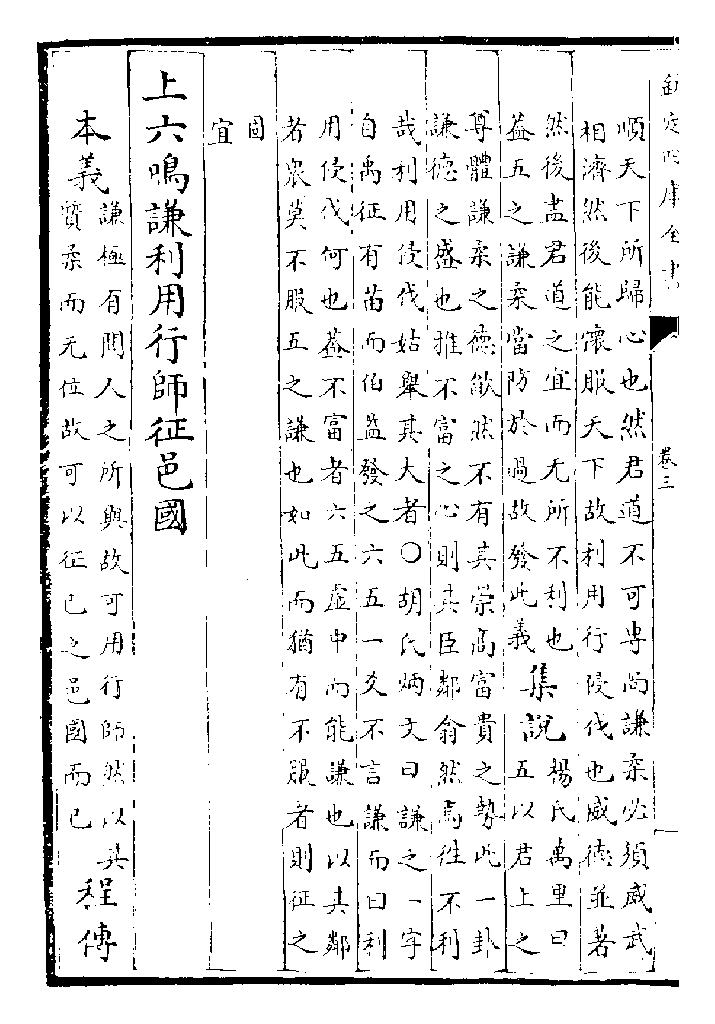 欽定四庫全書
卷三
順天下所歸心也然君道不可專尚謙柔必須威武
相濟然後能懷服天下故利用行侵伐也威德並著
然後盡君道之宜而无所不利也
蓋五之謙柔當防於過故發此義
集說
楊氏萬里曰
五以君上之
尊體謙柔之德欿然不有其崇高富貴之勢此一卦
謙德之盛也推不富之心則其臣鄰翕然焉徃不利
哉利用侵伐姑舉其大者〇胡氏炳文曰謙之一字
自禹征有苗而伯益發之六五一爻不言謙而曰利
用侵伐何也蓋不富者六五虛中而能謙也以其鄰
者衆莫不服五之謙也如此而猶有不服者則征之
固
宜
上六鳴謙利用行師征邑國
本義
謙極有聞人之所與故可用行師然以其
質柔而无位故可以征己之邑國而已
程傳